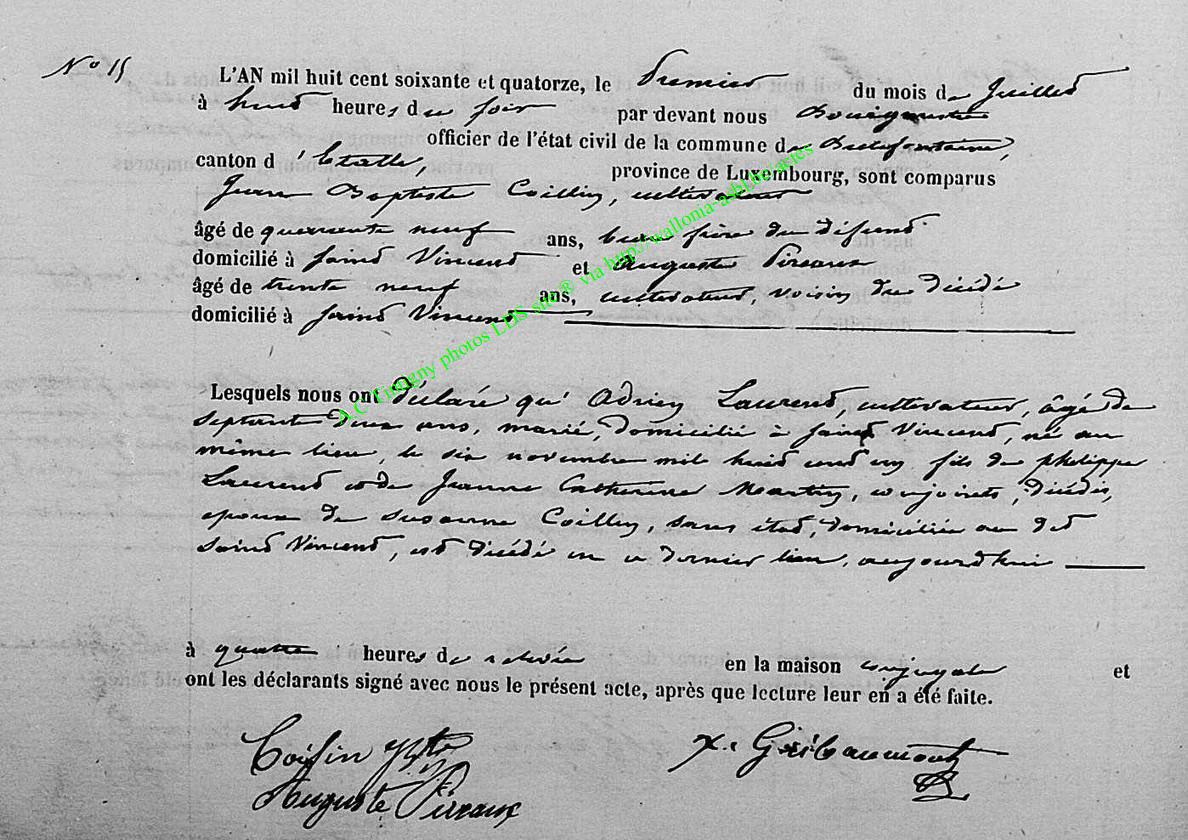 N° 15
L'AN mil huit cent soixante et quatorze, le Premier du mois de Juillet
à huit heures du soir par devant nous Bourgmestre
officier de l'état civil de la commune de Bellefontaine,
canton d'Etalle, province de Luxembourg, sont comparus
Jean Baptiste Coillin, cultivateur
âgé de quarante neuf ans, beau frère du défunt
domicilié à Saint Vincent et Auguste Pireaux
âgé de trente neuf ans, cultivateur, voisin du décédé
domicilié à Saint Vincent
Lesquels nous ont déclaré qu'Adrien Laurent, cultivateur, âgé de
septante deux ans, marié, domicilié à Saint Vincent, né au
même lieu, le six novembre mil huit cent un fils de philippe
Laurent et de Jeanne Catherine Martin, conjoints, décédés,
epoux de Susanne Coillin, sans état, domiciliée au dit
Saint Vincent, est décédé en ce dernier lieu, aujourd'hui
à quatre heures de relevée en la maison conjugale et
ont les déclarants signé avec nous le présent acte, après que lecture leur en a été faite.
Coillin Jbte
Auguste Pireaux
A.C Tintigny photos LDS site® via http://wallonia-asbl.libraries